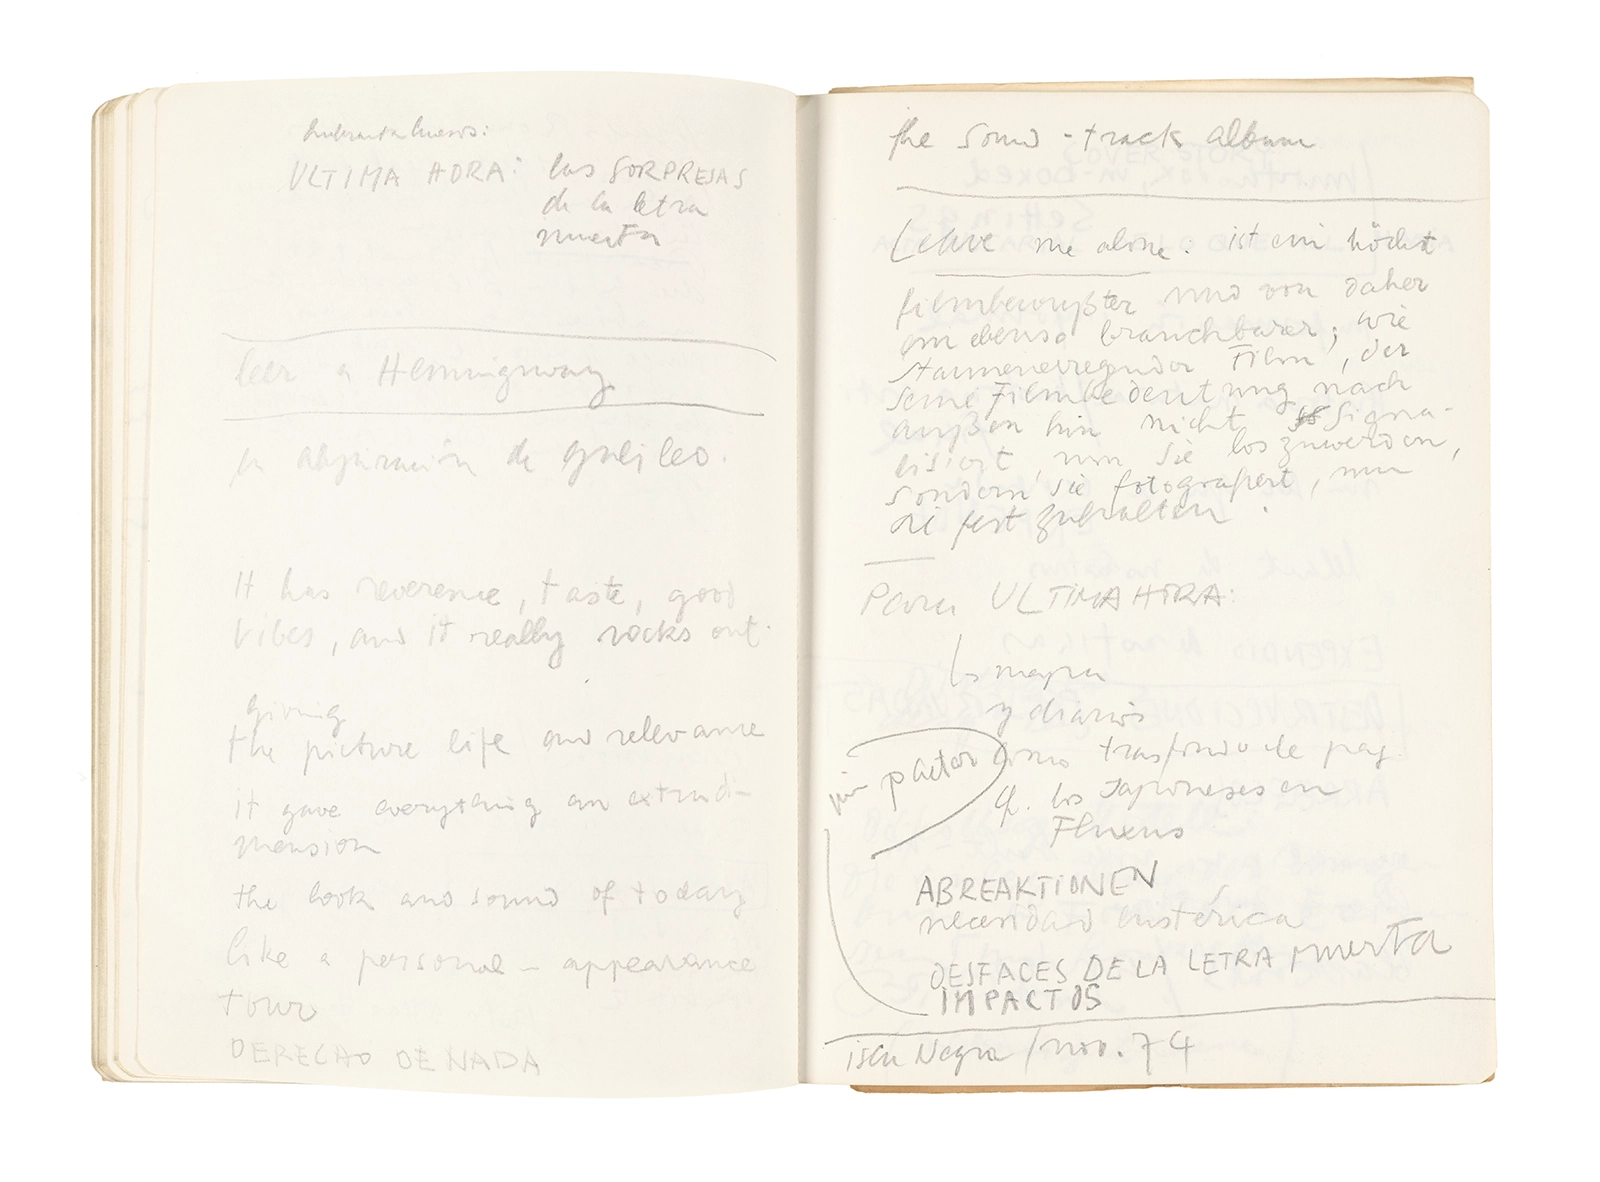 ULTIMA HORA: las SORPRESAS
de la letra
muerta
leer a Hemingway
la abjuración de galileo.
It has reverence, taste, good
vibes, and it really rocks out.
giving
the picture life and relevance
it gave everything an extra di-
mension
the look and sound of today
like a personal-appearance
tour
DERECHO DE NADA
the sound-track album
Leave me alone: ist ein höchst
filmbewußter und von daher
ein ebenso brauchbarer, wie
staunenerregender Film, der
seine Filmbedeutung nach
außen hin nicht signa-
lisiert, um sie loszuwerden,
sondern sie fotografiert, um
sie festzuhalten.
Para ULTIMA HORA:
los mapa
y diarios
como trasfondo de pag.
mi pactar
q. los Japoneses en
Fluxus
ABREAKTIONEN
necesidad histérica
DESFACES DE LA LETRA muerta
IMPACTOS
isla Negra / nov. 74